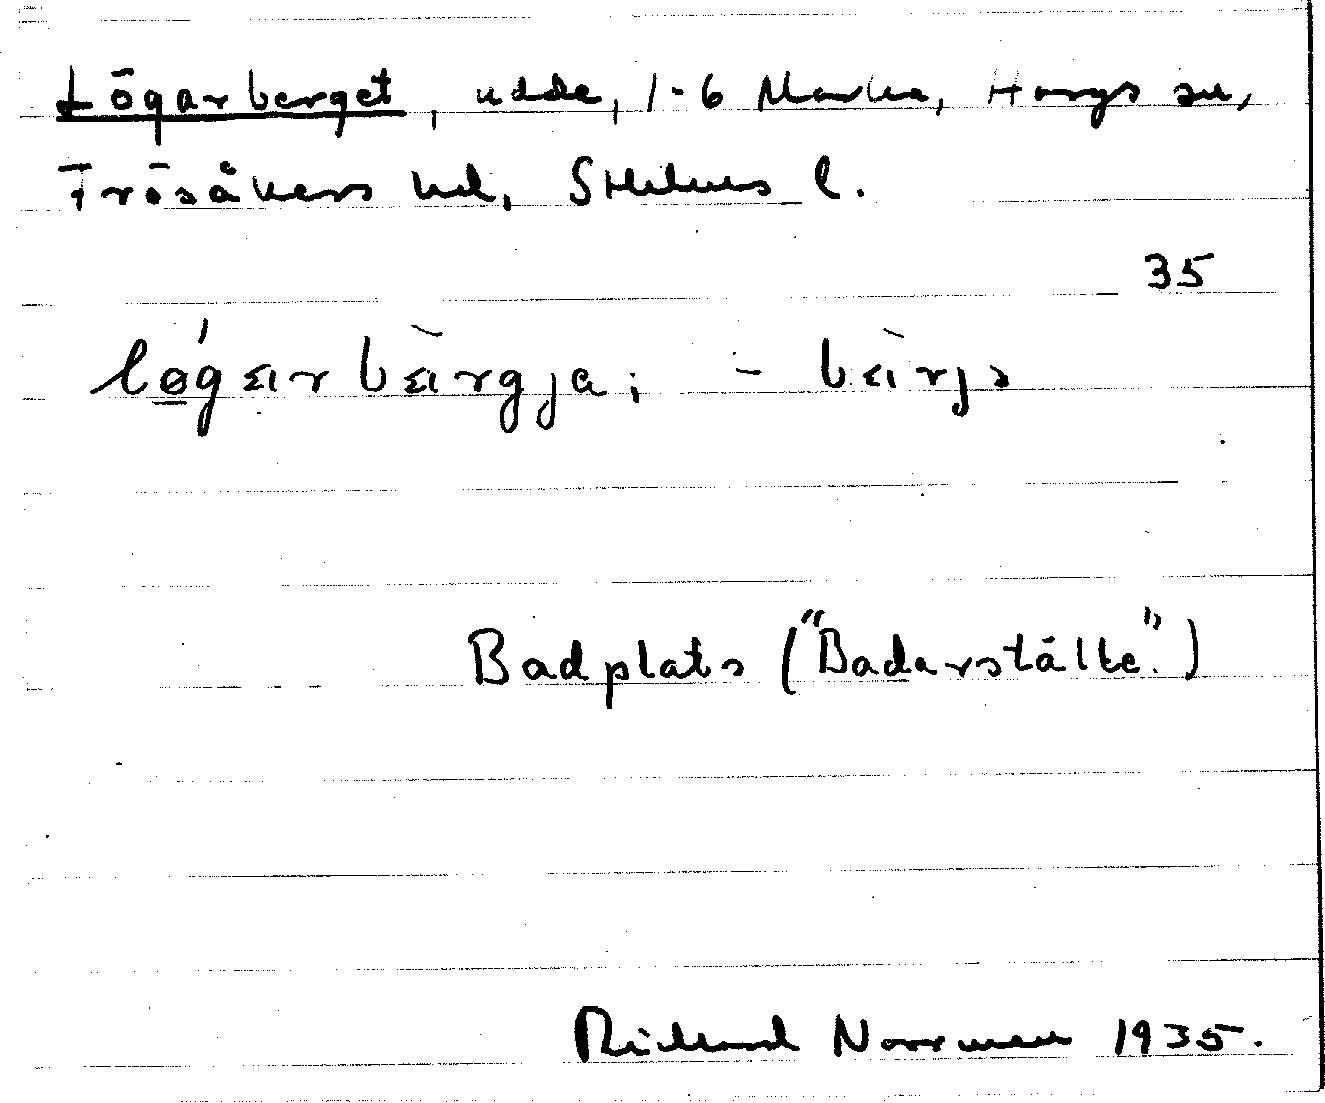 Lögarberget, udde, 1-6 Marka, Hargs sn,
Frösåkers hd, Sthlms l.
35
løgarbærgja; - bærjs
Badplats ("Badarställe".)
Richard Norrman 1935.